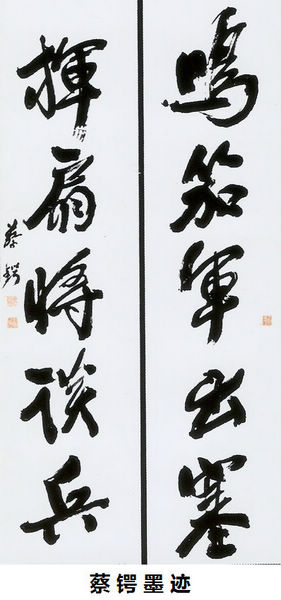 鳴笳軍出塞
揮扇將談兵
蔡鍔
蔡锷墨迹